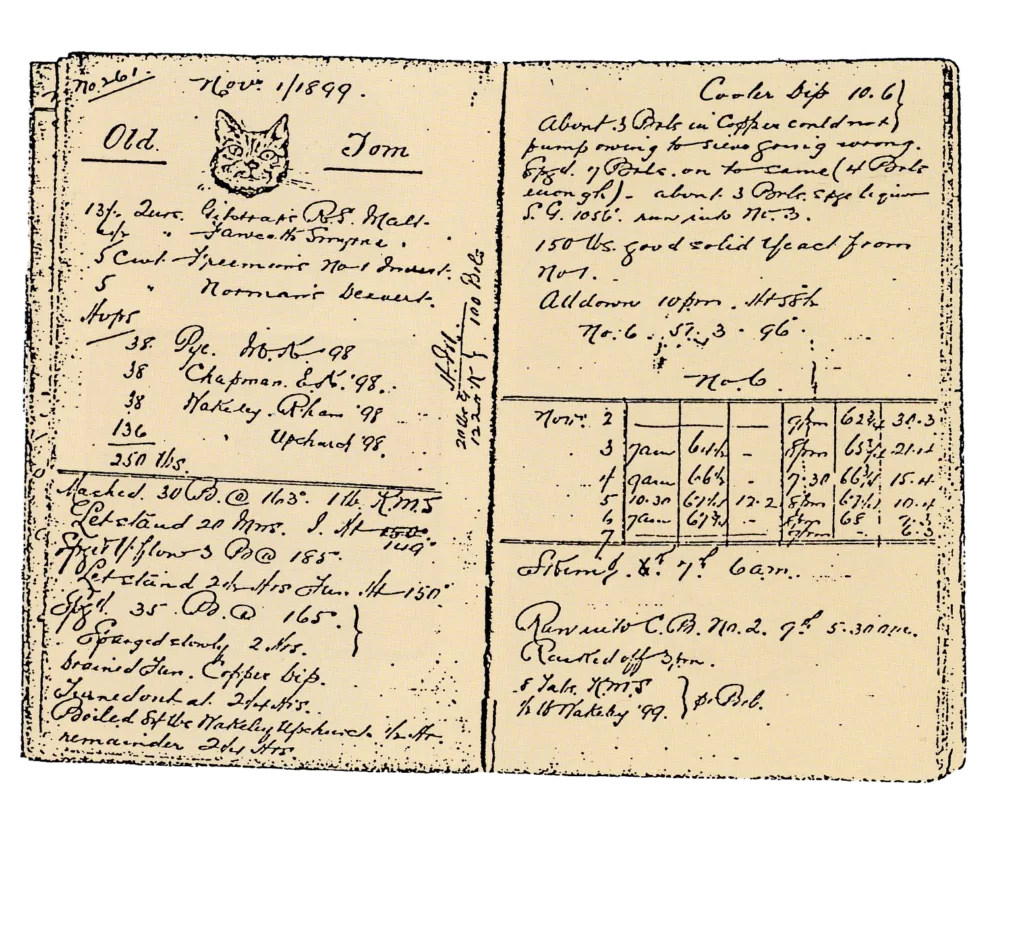 No. 261.
Novr 1/1899.
Old Tom
13½ Qurs. Gilstrap's R.S. Malt.
4½ " Fawcett Smyrna.
5 Cwt. Freeman's No 1 Invert.
5 " Norman's Dexvert.
Hops
38. Pye. M.K. 98
38 Chapman. E.K. '98.
38 Wakeley. Rham '98
136 " Upchurch '98.
250 lbs.
100 Brls
Mashed. 30 B. @ 163°. 1 lb. K.M.S
Let stand 20 Mns. I. Ht 150°
149°
3 B @ 185.
Let stand 2½ Hrs Tun. Ht 150°
Spgd. 35. B. @ 165°.
Sparged slowly 2 Hrs.
Drained Tun. Copper Dip.
Turned out at. 2¼ Hrs.
Boiled Wakeley Upchurch ½ Hr.
remainder 2¼ Hrs
Cooler Dip 10.6
About 3 Brls in Copper could not
pump owing to sieve going wrong.
Spgd. 7 Brls. on to same (4 Brls
enough). about 3 Brls. spge liquor
S.G. 1056°. run into No. 3.
150 lbs. good solid yeast from
No 1.
All down 10pm. Ht 58½
No. 6. 57. 3. 96.
No. 6
Novr. 2 9pm 62¾ 30.3
3 7am 64½ - 8pm 65¾ 21.4
4 9am 66½ - 7.30 66¾ 15.4
5 10.30 67½ 12.2 8pm 67½ 10.4
6 7am 67¾ - 8pm 68 7.3
7 - 6.3
7th 6am.
Run into C.B. No. 2. 9th 5.30am.
Racked off 3pm.
8 Tabs. K.M.S
½ lb Wakeley '99. pr Brl.